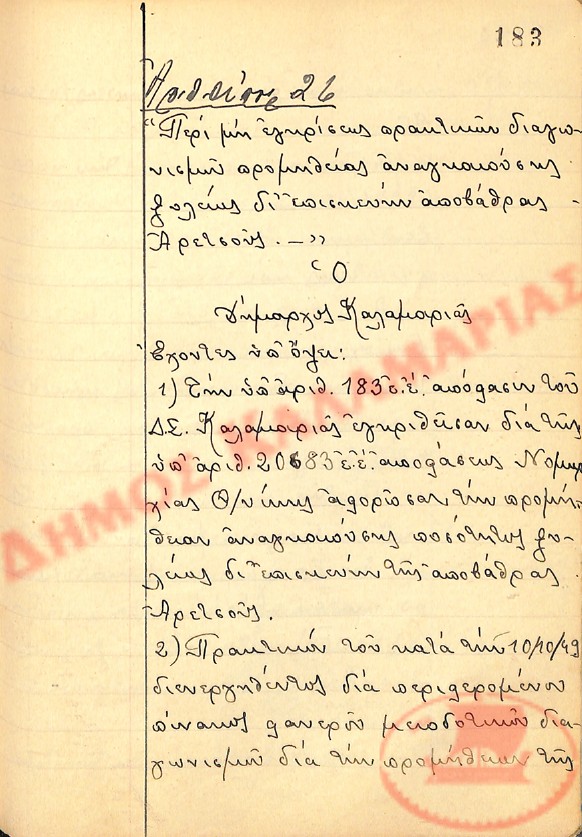 183
Ἀπόφασις 26
"Περί μή ἐγκρίσεως πρακτικοῦ διαγω-
νισμοῦ προμηθείας ἀναγκαιούσης
ξυλείας δι' ἐπισκευήν ἀποβάθρας
Ἀρετσοῦς. —"
Ὁ
Δήμαρχος Καλαμαριᾶς
Ἔχοντες ὑπ' ὄψει:
1) Τήν ὑπ' ἀριθ. 183 ἐ.ἔ. ἀπόφασιν τοῦ
Δ.Σ. Καλαμαριᾶς ἐγκριθεῖσαν διά τῆς
ὑπ' ἀριθ. 20683 ἐ.ἔ. ἀποφάσεως Νομαρ
χίας Θ/νίκης ἀφορῶσαν τήν προμή-
θειαν ἀναγκαιούσης ποσότητος ξυ-
λείας δι' ἐπισκευήν τῆς ἀποβάθρας
Ἀρετσοῦς.
2) Πρακτικόν τοῦ κατά τήν 10/10/49
διενεργηθέντος διά περιφερομένου
πίνακος φανεροῦ μειοδοτικοῦ δια-
γωνισμοῦ διά τήν προμήθειαν τῆς
ΔΗΜΟΣ ΚΑΛΑΜΑΡΙΑΣ